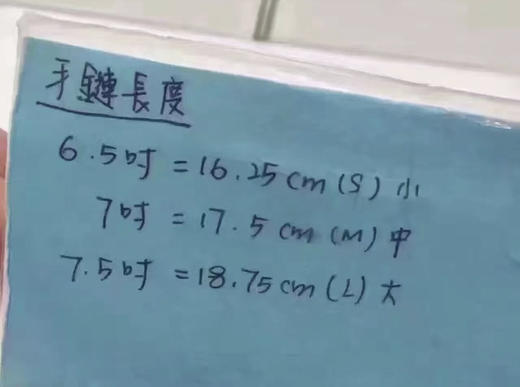 手鏈長度
6.5吋 = 16.25cm (S) 小
7吋 = 17.5cm (M) 中
7.5吋 = 18.75cm (L) 大